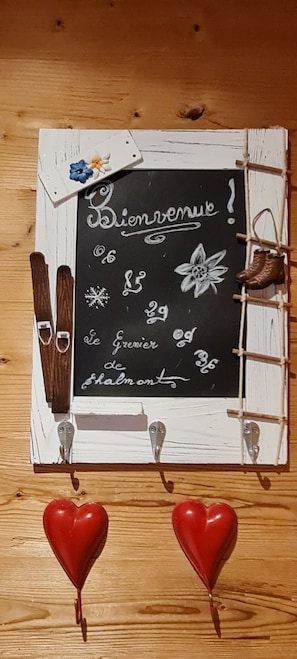 Bienvenue !
06
15
29
09
36
Le Grenier
de
Chalmont